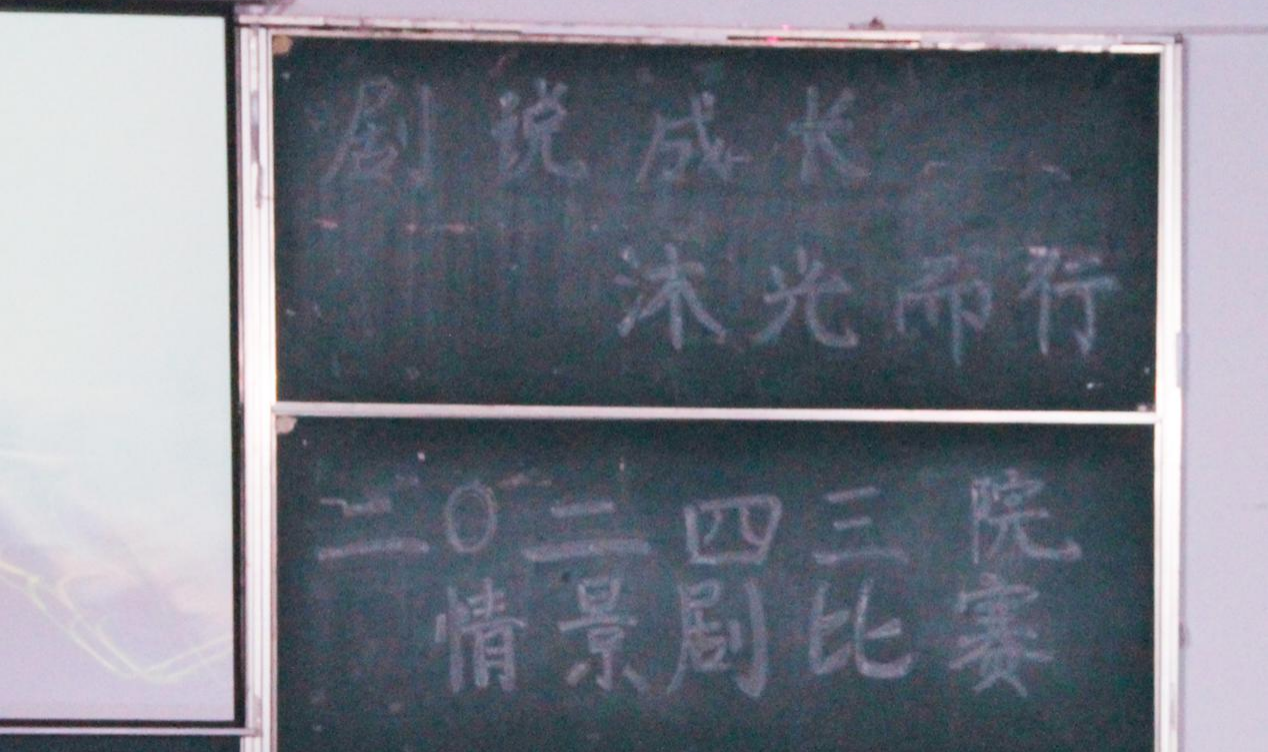 剧说成长
沐光而行
二0二四三院
情景剧比赛